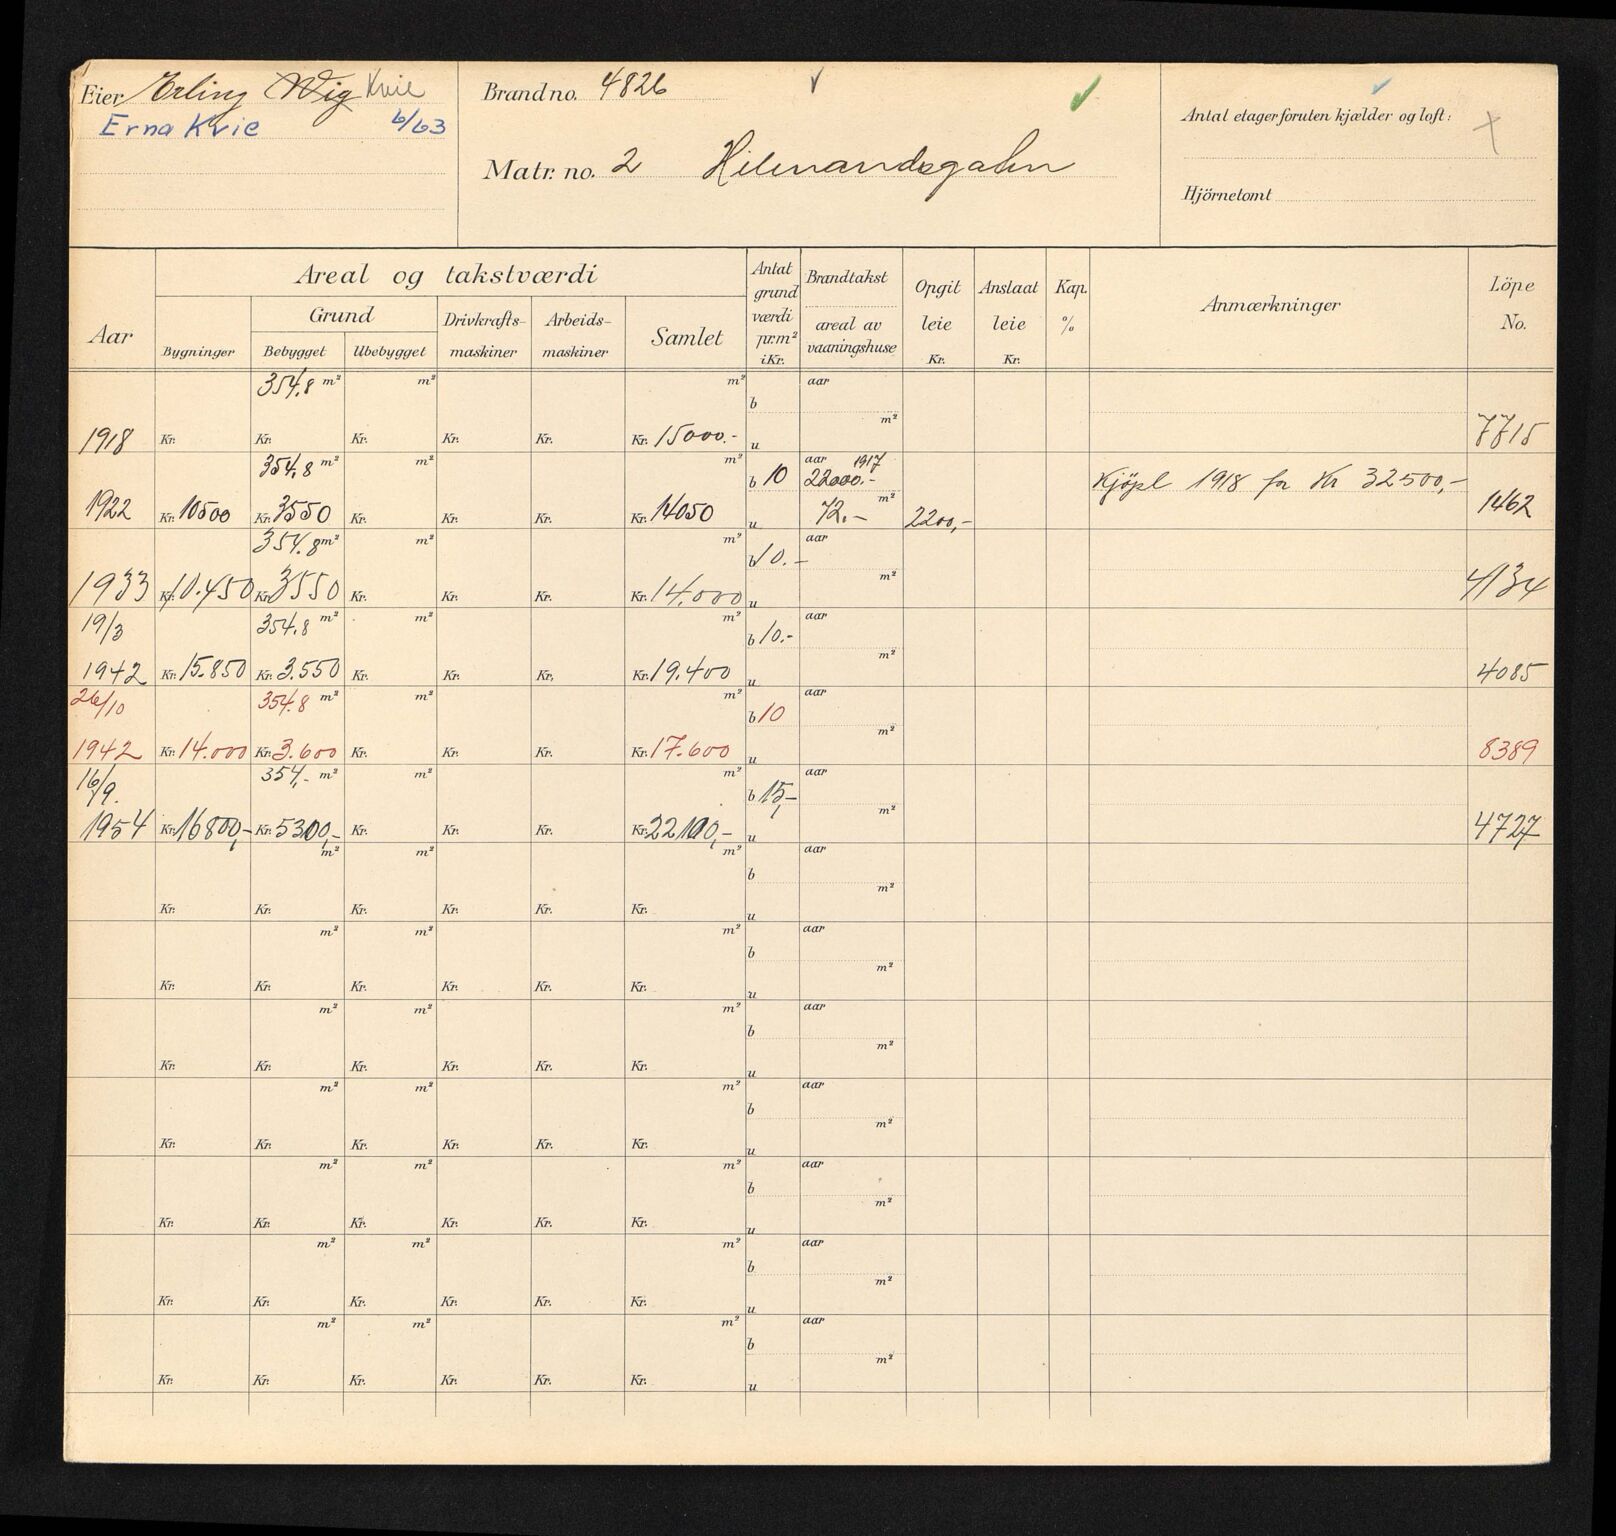 Eier Erling Wig Kvie
Erna Kvie 6/63
Brand no. 4826
Matr. no. 2
Antal etager foruten kjælder og loft:
Hjörnetomt
Aar
Areal og takstværdi
Bygninger
Grund
Bebygget
Ubebygget
Drivkrafts-
maskiner
Arbeids-
maskiner
Samlet
Antat
grund
værdi
pr. m²
i Kr.
Brandtakst
areal av
vaaningshuse
Opgit
leie
Kr.
Anslaat
leie
Kr.
Kap.
%
Anmærkninger
Löpe
No.
354.8 m² m² m² aar
b
m²
1918 Kr. Kr. Kr. Kr. Kr. Kr. 15000.- u 7715
354.8 m² m² m² aar 1917
b 10 22000.- Kjöpt 1918 for Kr 32500,-
m²
1922 Kr. 10500 Kr. 3550 Kr. Kr. Kr. Kr. 14050 u 72.- 2200,- 1462
354.8 m² m² m² aar
b 10.-
m²
1933 Kr. 10.450 Kr. 3550 Kr. Kr. Kr. Kr. 14.000 u 4134
19/3 354.8 m² m² m² aar
b 10.-
m²
1942 Kr. 15.850 Kr. 3.550 Kr. Kr. Kr. Kr. 19.400 u 4085
26/10 354.8 m² m² m² aar
b 10
m²
1942 Kr. 14.000 Kr. 3.600 Kr. Kr. Kr. Kr. 17.600 u 8389
16/9. 354,- m² m² m² aar
b 15,-
m²
1954 Kr. 16800,- Kr. 5300,- Kr. Kr. Kr. Kr. 22100,- u 4727
m² m² m² aar
b
m²
Kr. Kr. Kr. Kr. Kr. Kr.
m² m² m² aar
b
m²
Kr. Kr. Kr. Kr. Kr. Kr. u
m² m² m² aar
b
m²
Kr. Kr. Kr. Kr. Kr. Kr. u
m² m² m² aar
b
m²
Kr. Kr. Kr. Kr. Kr. Kr. u
m² m² m² aar
b
m²
Kr. Kr. Kr. Kr. Kr. Kr. u
m² m² m² aar
b
m²
Kr. Kr. Kr. Kr. Kr. Kr. u
m² m² m² aar
b
m²
Kr. Kr. Kr. Kr. Kr. Kr. u